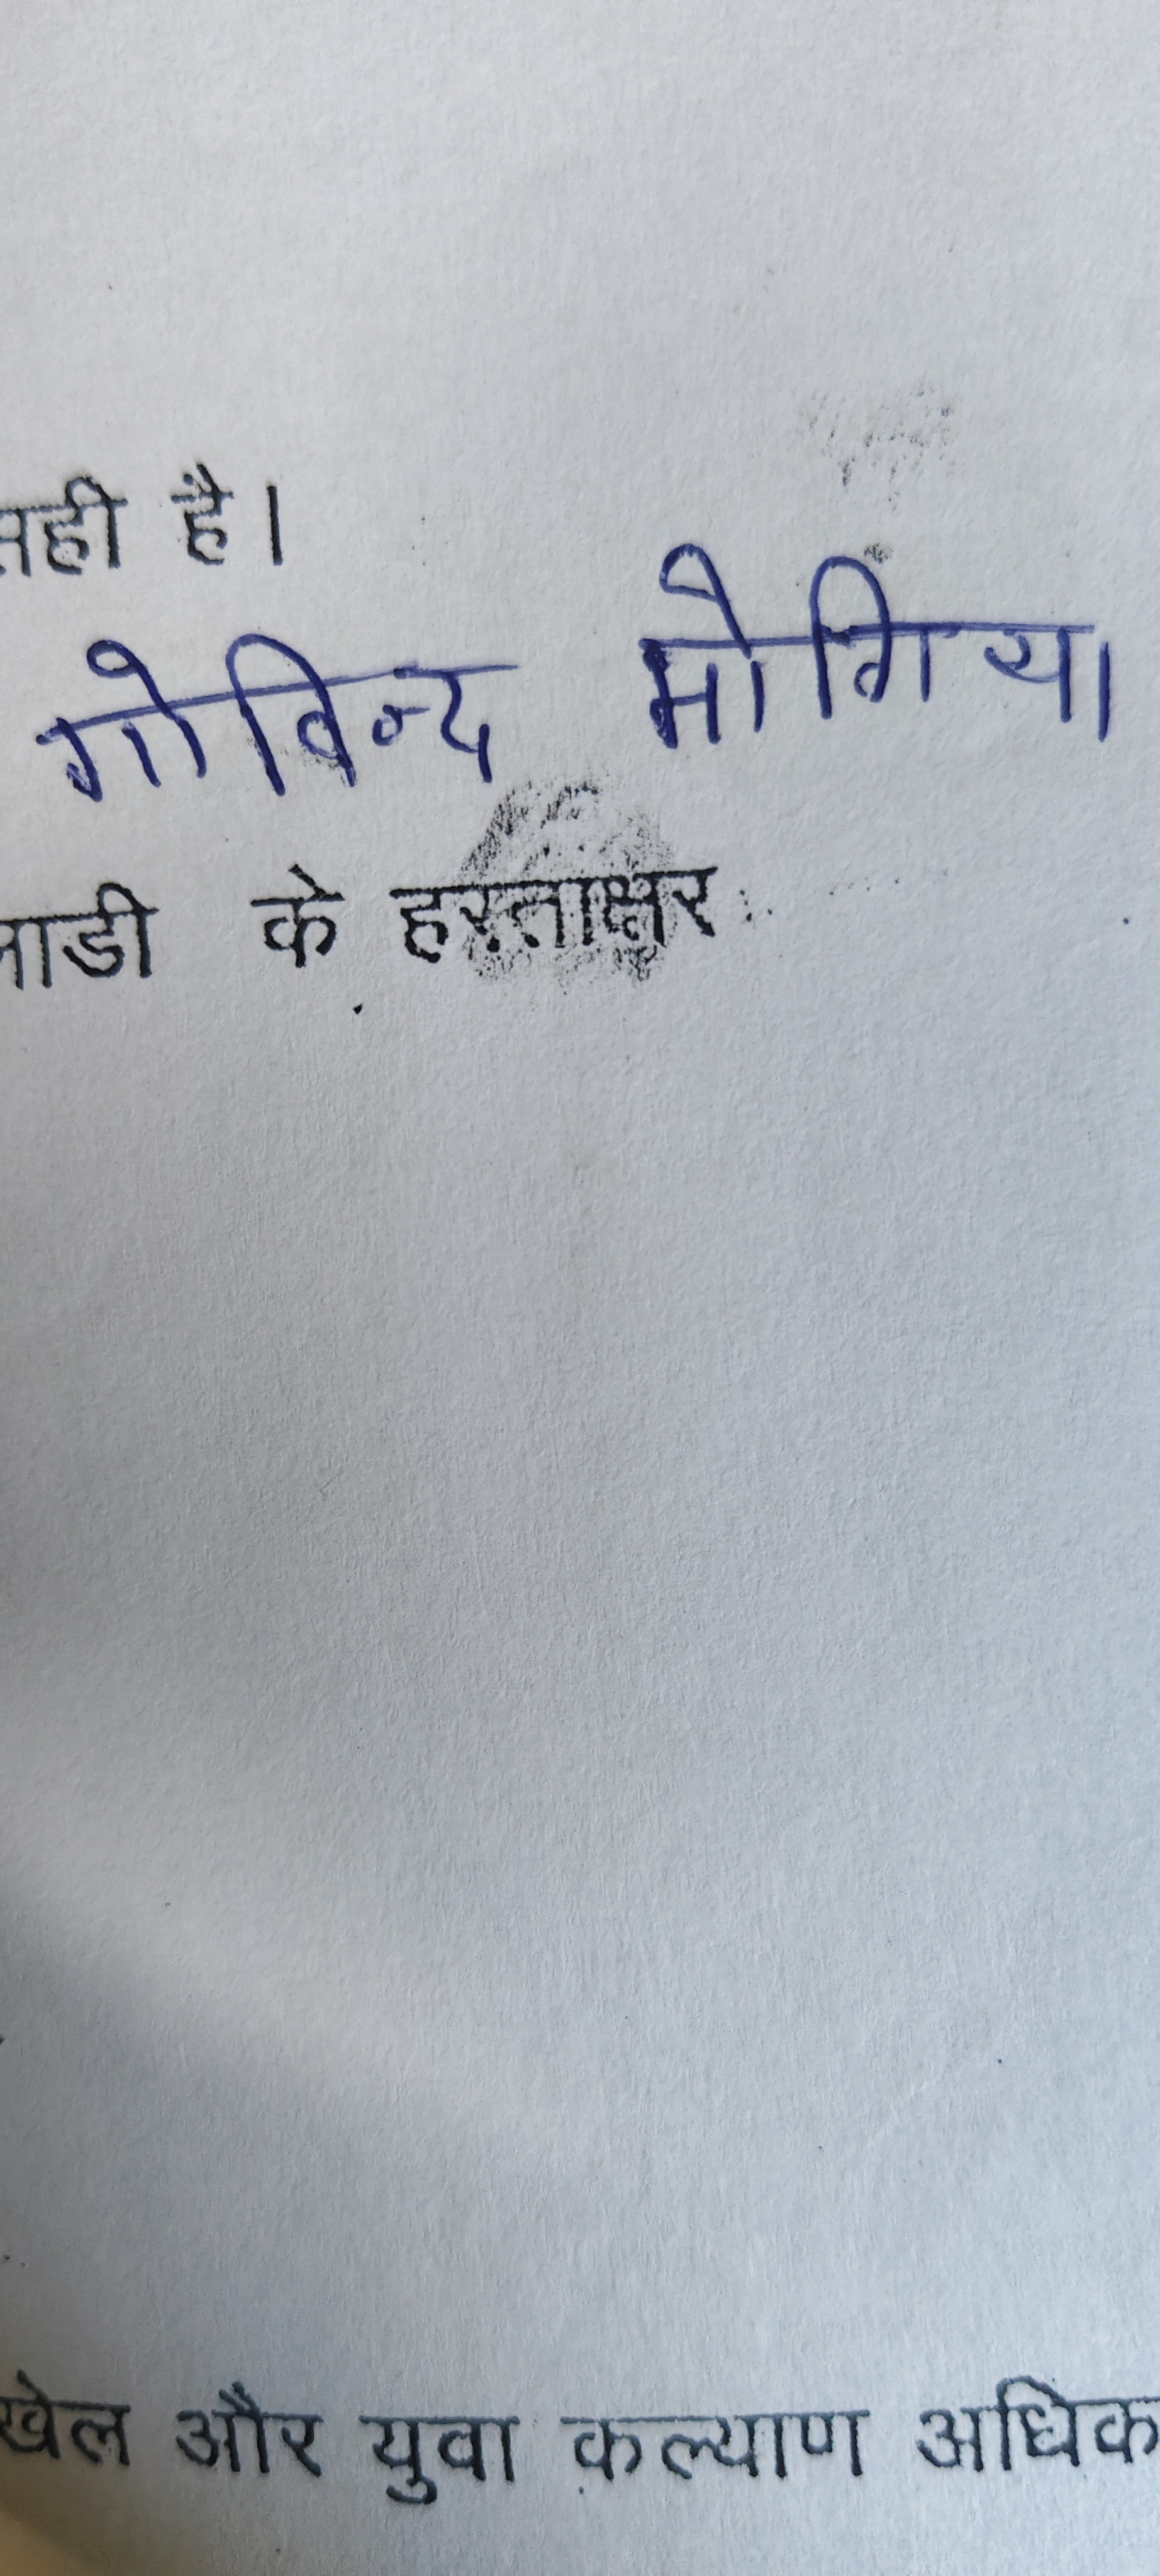 सही है।
गोविन्द मोगिया
के हस्ताक्षर
खेल और युवा कल्याण अधिक